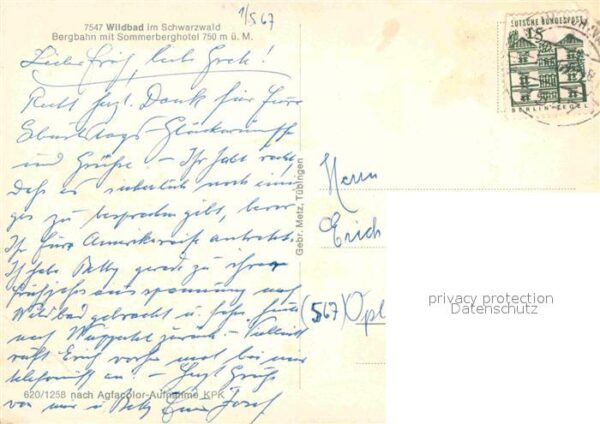 1/5 67
7547 Wildbad im Schwarzwald
Bergbahn mit Sommerberghotel 750 m ü. M.
Lieber Erich, liebe Grete!
Recht herzl. Dank für Eure
Geburtstags-Glückwünsche
und Grüße. - Ihr habt recht,
daß es sicherlich noch eini
ges zu besprechen gibt, bevor
Ihr Eure Amerikareise antretet.
Ich habe Betty gerade zu ihrer
Frühjahrsausspannung nach
Wildbad gebracht u. fahre heute
nach Wuppertal zurück. - Vielleicht
ruft Erich vorher mal bei mir
telefonisch an. - Herzl. Grüße
von mir u. Betty Euer Josef
620/1258 nach Agfacolor-Aufnahme KPK
Gebr. Metz, Tübingen
DEUTSCHE BUNDESPOST
15
BERLIN-TEGEL
Herrn
Erich
(567) Opl
privacy protection
Datenschutz